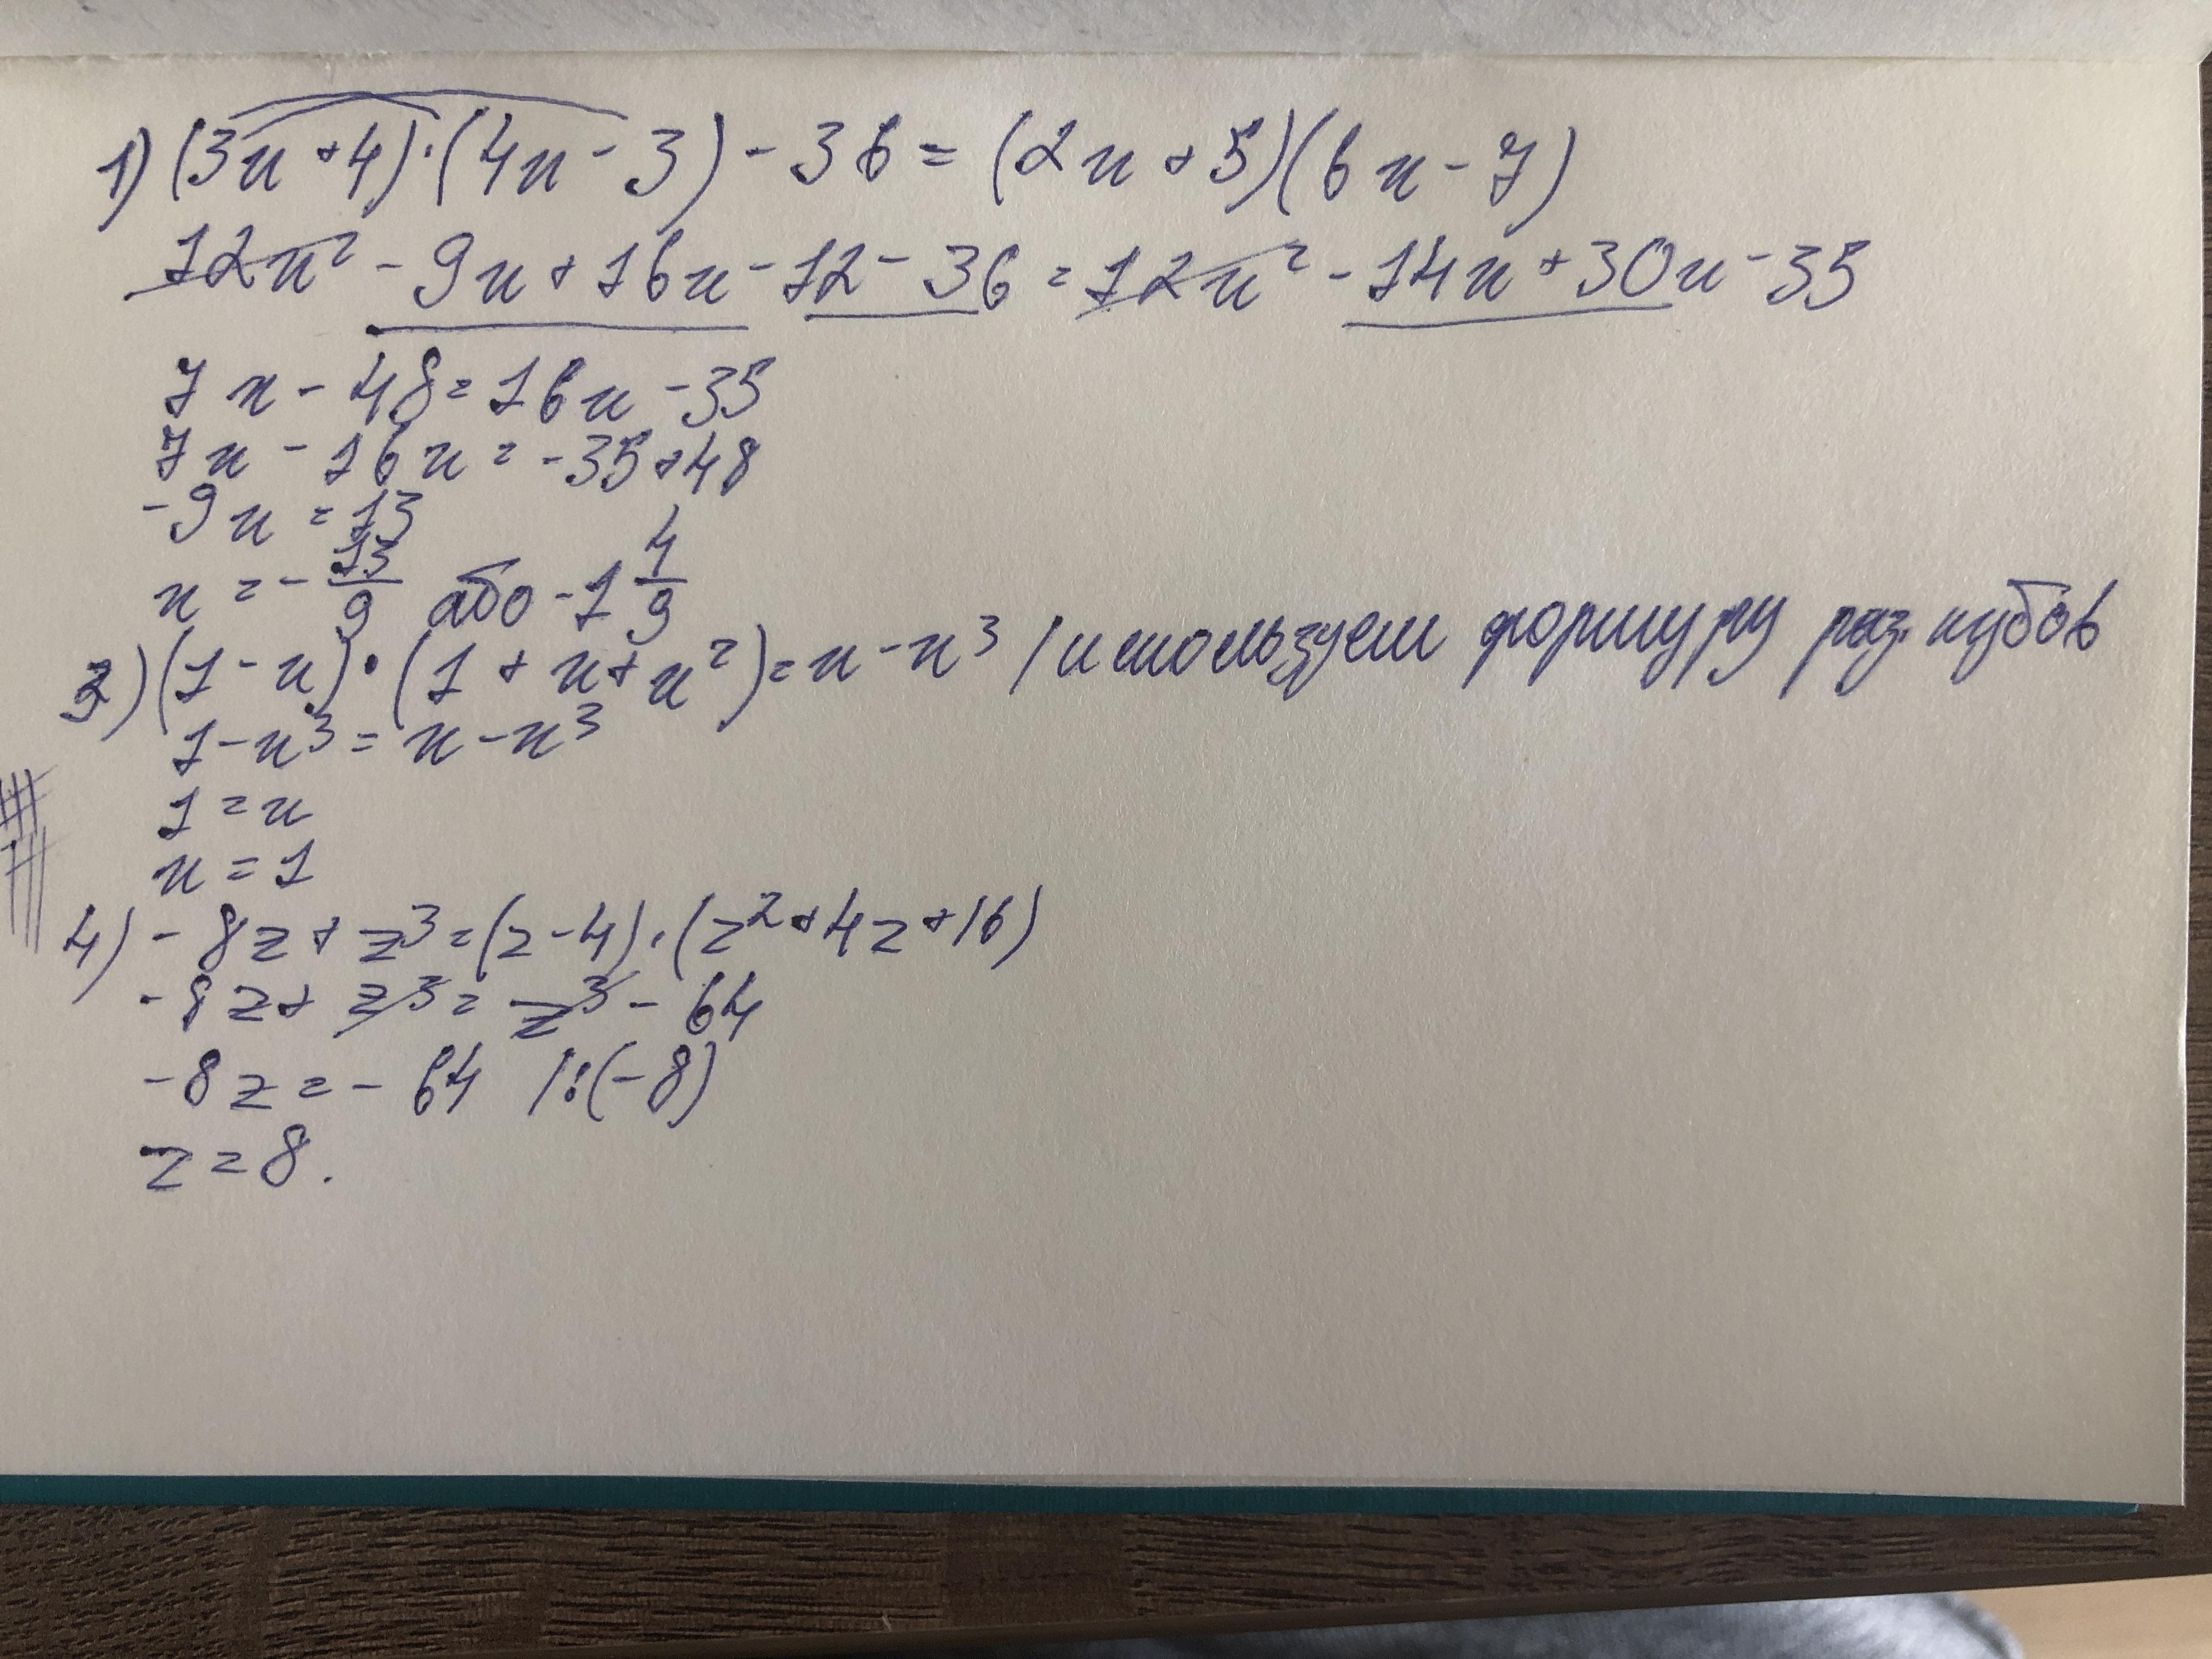 1) (3х + 4)·(4х - 3) - 36 = (2х + 5)(6х - 7)
12х² - 9х + 16х - 12 - 36 = 12х² - 14х + 30х - 35
7х - 48 = 16х - 35
7х - 16х = -35 + 48
-9х = 13
х = -13/9 або -1 4/9
3) (1 - х)·(1 + х + х²) = х - х³ / используем формулу раз. кубов
1 - х³ = х - х³
1 = х
х = 1
4) -8z + z³ = (z - 4)·(z² + 4z + 16)
-8z + z³ = z³ - 64
-8z = -64 /:(-8)
z = 8.